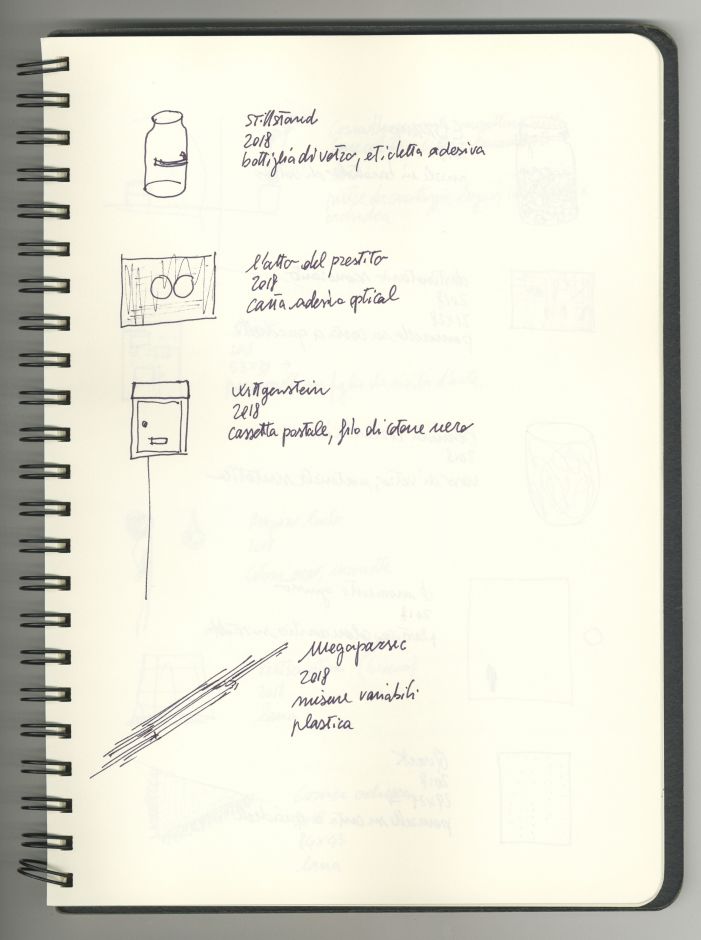 stillstand
2018
bottiglia di vetro, etichetta adesiva
l'atto del prestito
2018
carta adesiva optical
Wittgenstein
2018
cassetta postale, filo di cotone nero
Megaparsec
2018
misure variabili
plastica